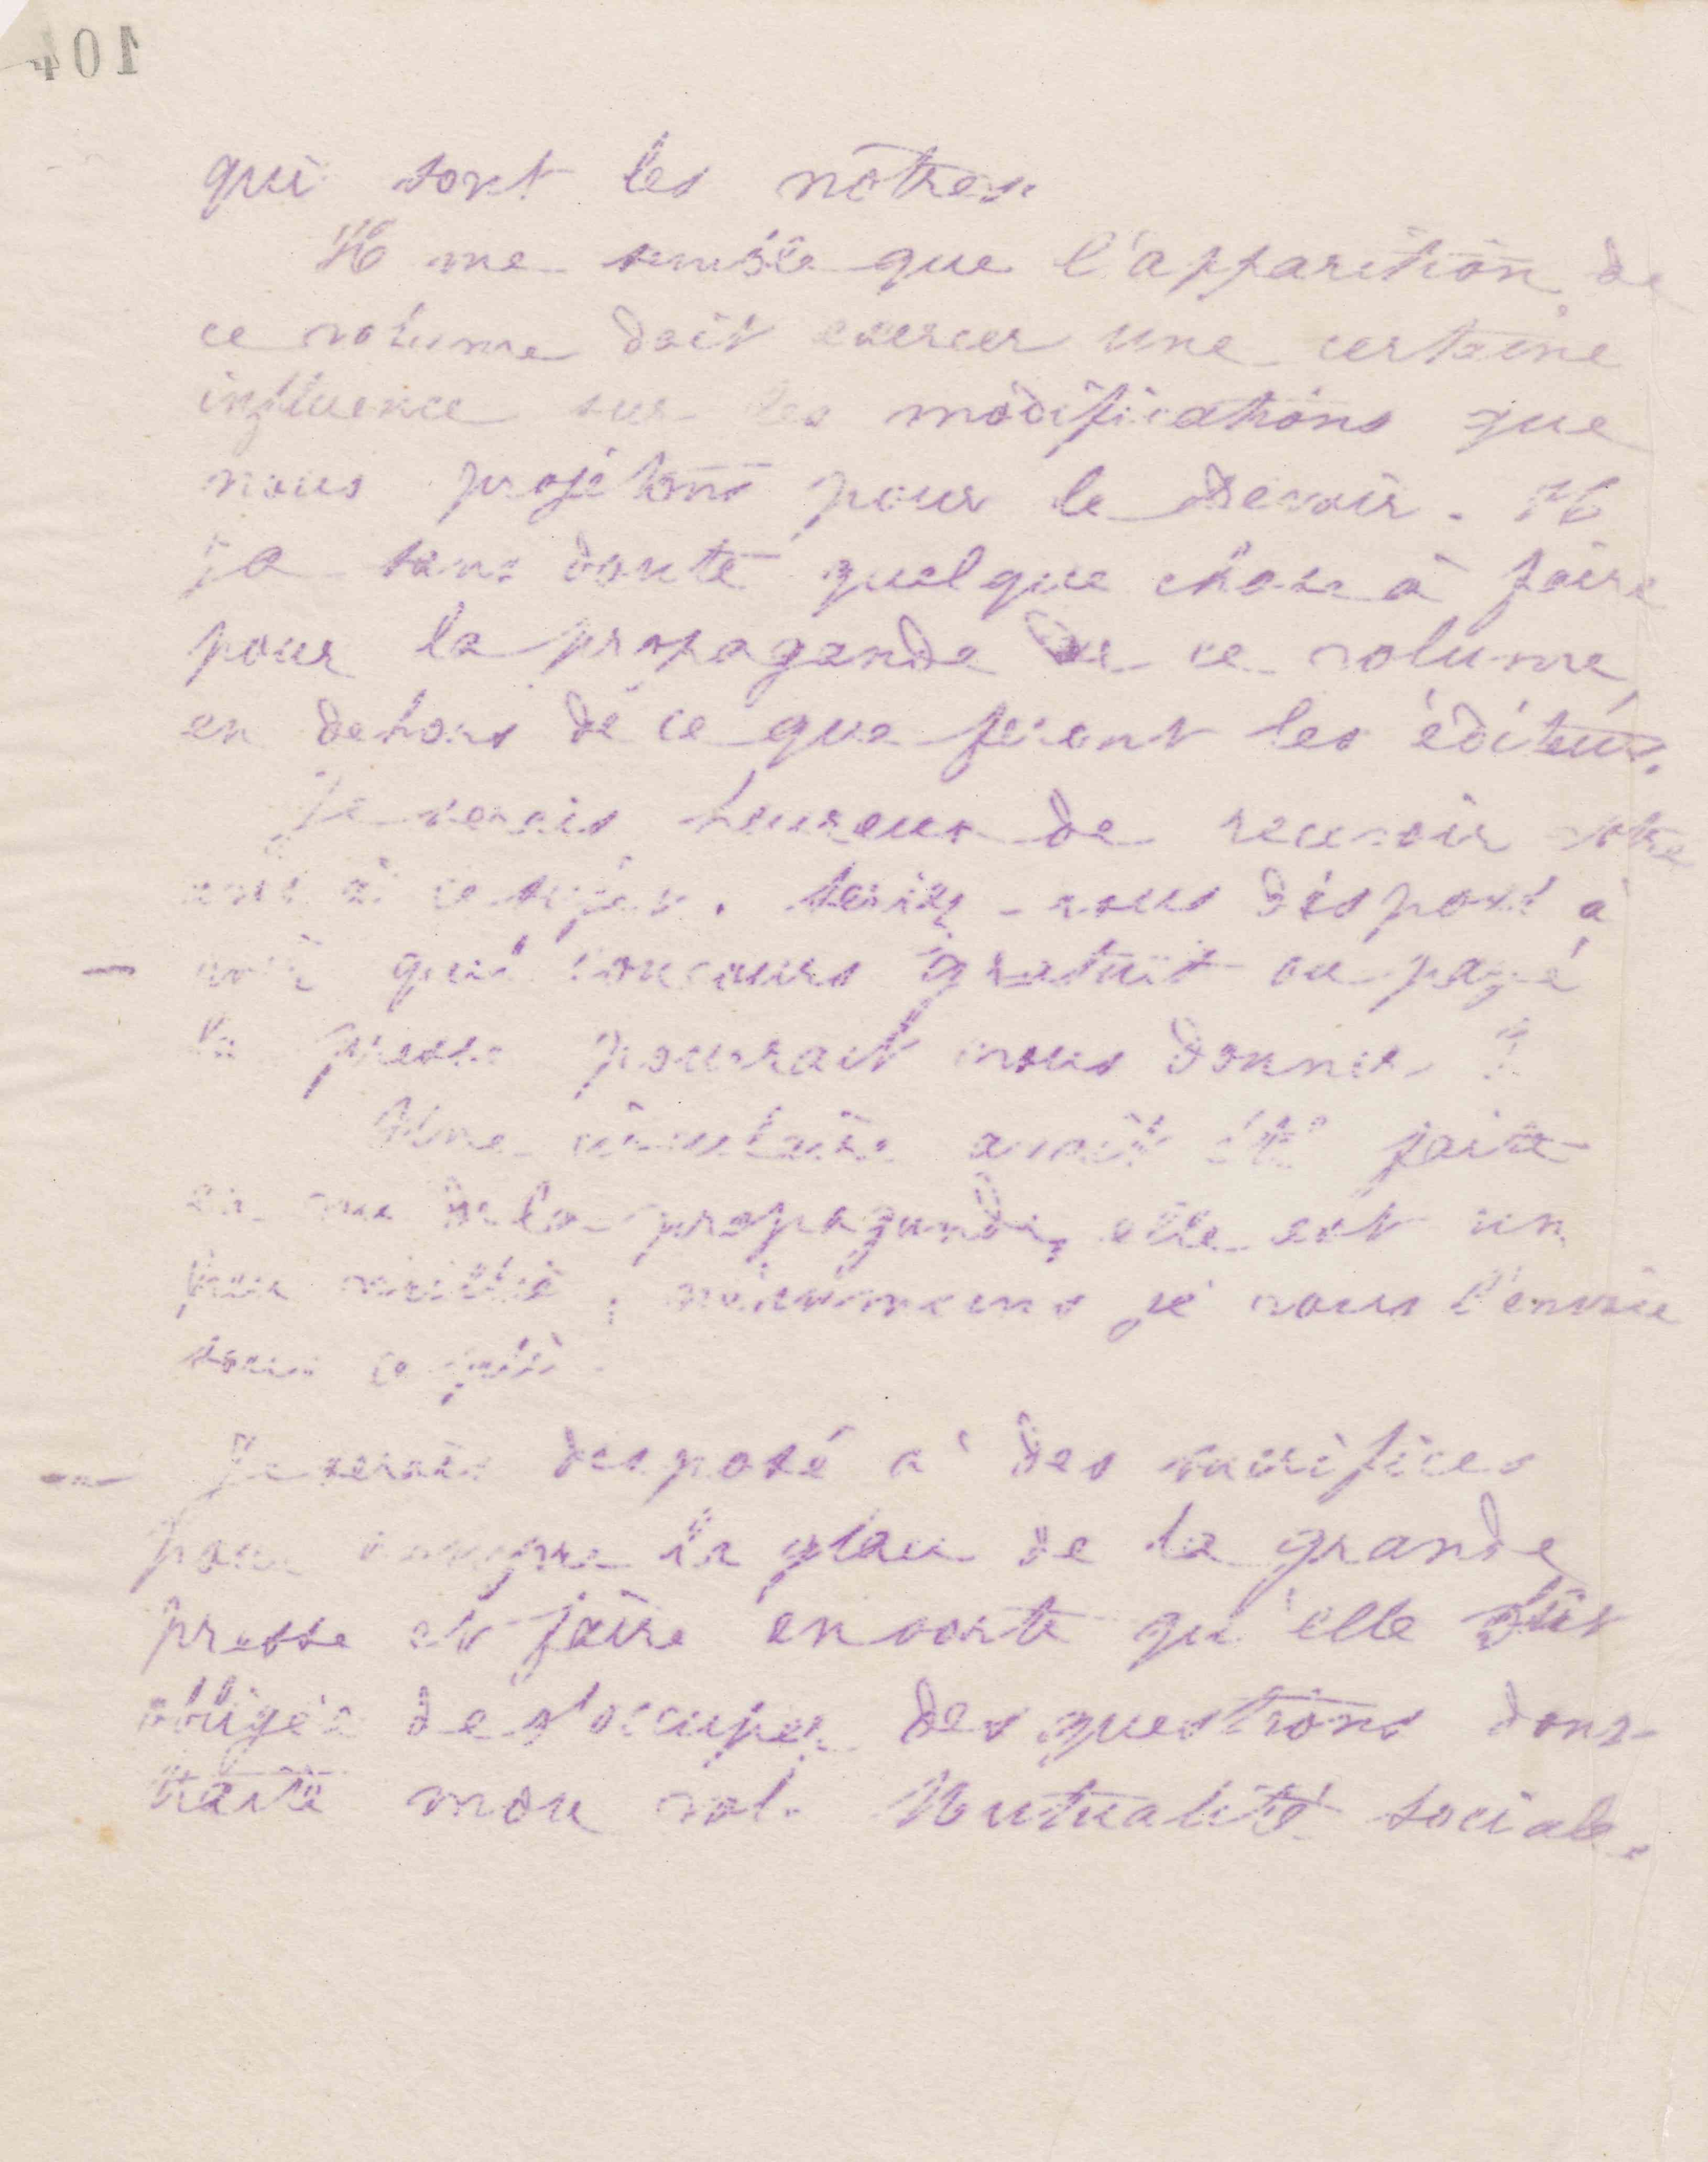 104
qui sont les nôtres.
Il me semble que l'apparition de
ce volume doit exercer une certaine
influence sur les modifications que
nous projetons pour le Devoir. Il
y a sans doute quelque chose à faire
pour la propagande de ce volume,
en dehors de ce que feront les éditeurs.
Je serais heureux de recevoir votre
avis à ce sujet. Seriez-vous disposé à
voir quel concours gratuit ou payé
la presse pourrait nous donner ?
Une circulaire avait été faite
en vue de la propagande, elle est un
peu vieillie, néanmoins je vous l'envoie
sous ce pli.
Je serais disposé à des sacrifices
pour rompre la glace de la grande
presse et faire en sorte qu'elle fût
obligée de s'occuper des questions dont
traite mon vol. Mutualité sociale.